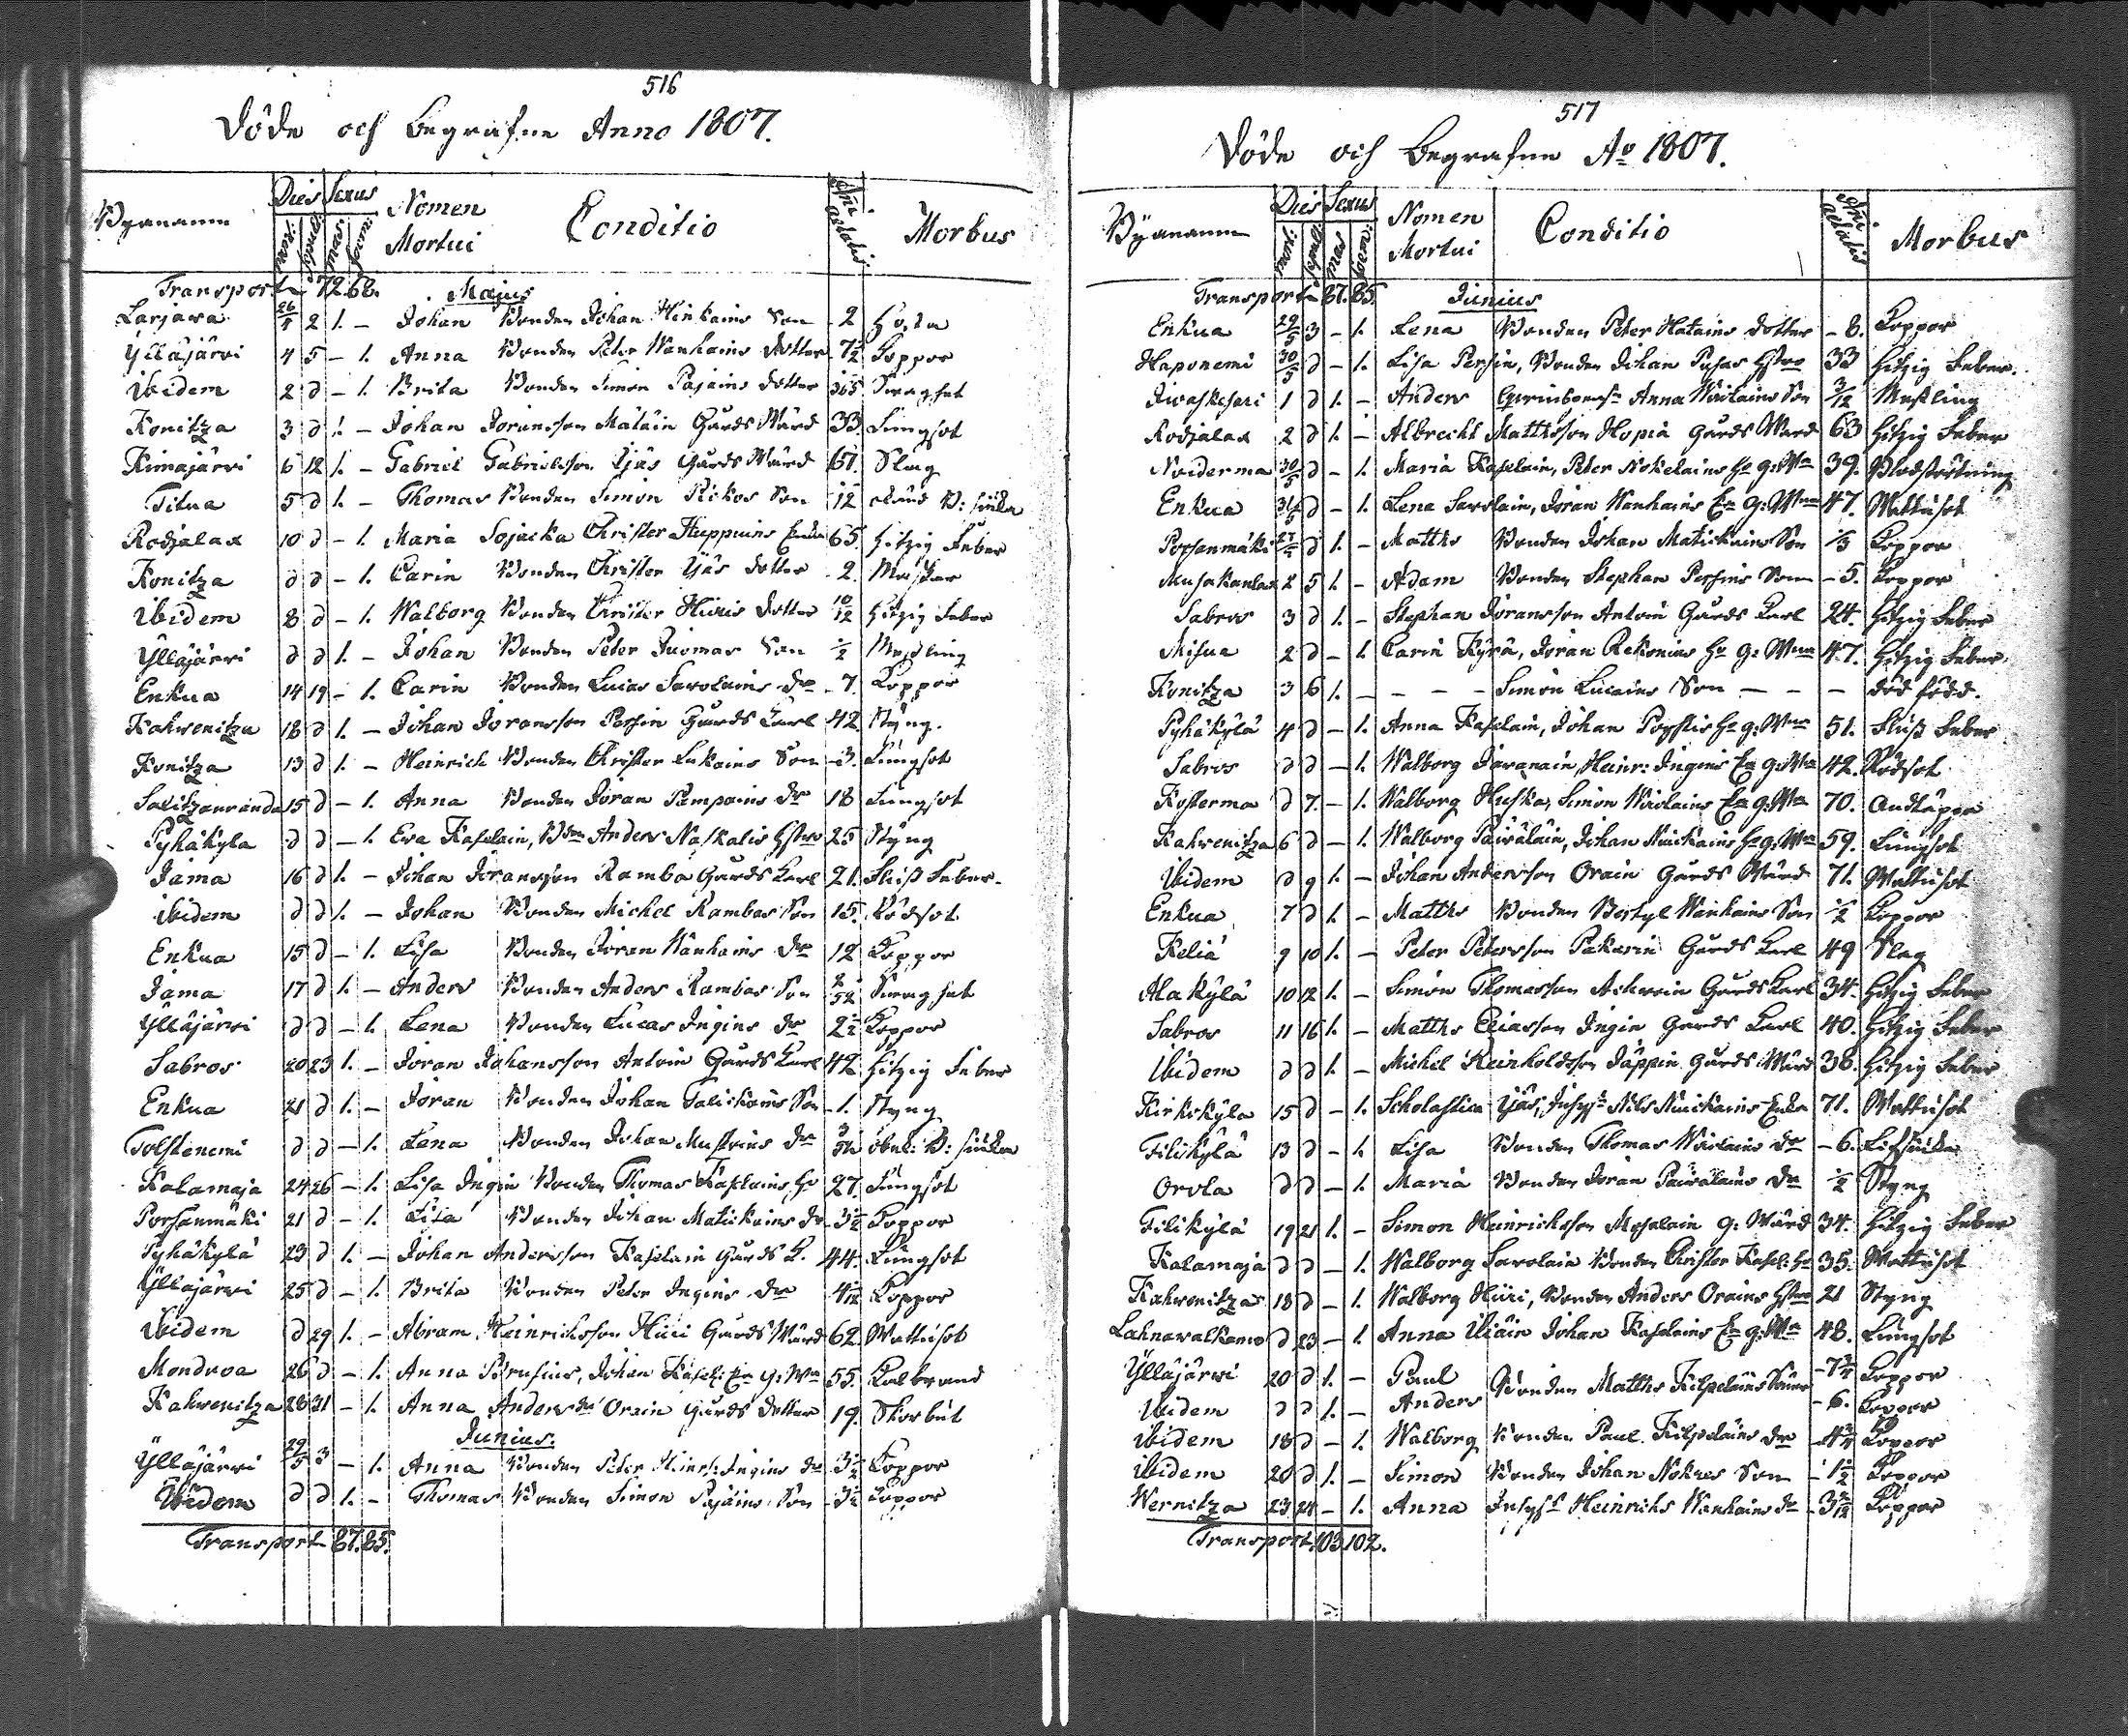 516
Döde och Begrafne Anno 1807.
Bÿanamn Dies Sexus Nomen Mortui Conditio Morbus
Transport 72. 68. Majus
Larjawa 26/4 2 1. – Johan Bonden Johan Hinkains Son 2 Hosta
Ylläjärvi 4 5 – 1. Anna Bonden Peter Wanhains dotter Koppor
Ibidem 2 d – 1. Brita Bonden Simon Pajains dotter
Konitza 3 d 1. – Johan Göransson Matäin Gårds Wärd 33. Lungsot
Kimajärvi 6 12 1. – Gabriel Gabrielsson Ijäs Gårds Wärd 67. Slag
Titua 5 d 1. – Thomas Bonden Simon Rikos Son
Rodjalax 10 d – 1. Maria Sojacka Christer Huppuins Enka 65. Hitzig Feber
Konitza d d – 1. Carin Bonden Christer Ijäs dotter 2.
Ibidem 8 d – 1. Walborg Bonden Christer Hiiris dotter 10/12 Hitzig Feber
Ylläjärvi d d 1. – Johan Bonden Peter Juomas Son 1/2 Messling
Enkua 14 19 – 1. Carin Bonden Lucas Savolains dr 7. Koppor
Kahwenitza 18 d 1. – Johan Göransson Persin Gårds Karl 42. Styng.
Konitza 13 d 1. – Heinrich Bonden Christer Lukains Son 3. Lungsot
Savitzanranda 15 d – 1. Anna Bonden Göran Pampains dr 18 Lungsot
Pyhäkyla d d – 1. Eva Kaselain, Bdn Anders Naskalis Hstro 25 Styng
Jama 16 d 1. – Johan Göransson Ramba Gårds Karl 21. Fluss Feber.
Ibidem d d 1. – Johan Bonden Michel Rambas Son 15. Rödsot
Enkua 15 d – 1. Lisa Bonden Göran Wanhains dr 12 Koppor
Jama 17 d 1. – Anders Bonden Anders Rambas Son 2/52
Ylläjärwi d d – 1. Lena Bonden Lucas Ingins dr 2 1/2 Koppor
Sabros 20 23 1. – Göran Johansson Antoin Gårds Karl 42 Hitzig Feber
Enkua 21 d 1. – Göran Bonden Johan Talickains Son 1. Styng
Tolstenemi d d – 1. Lena Bonden Johan Mustoins dr 3/52
Kalamaja 24 26 – 1. Lisa Ingin Bonden Thomas Kaselains Hu 27. Lungsot
Porsanmäki 21 d – 1. Lisa Bonden Johan Matickains dr 3 1/2 Koppor
Pyhäkylä 23 d 1. – Johan Andersson Kaselain Gårds K. 44. Lungsot
Ylläjärwi 25 d – 1. Brita Bonden Peter Ingins dr Koppor
Ibidem d 29 1. – Abram Heinrichsson Hiiri Gårds Wärd 62. Wattusot
Mondroa 26 d – 1. Anna Brusius, Johan Kasel: En g: Wa 55. Kalbrand
Kahwenitza 28 31 – 1. Anna Andersdr Orain Gårds dotter 19. Skorbut
Junius.
Ylläjärwi 29/5 3 – 1. Anna Bonden Peter Hinrs: Ingins dr 3 1/2 Koppor
Ibidem d d 1. – Thomas Bonden Simon Pajains Son Koppor
Transport 87. 85.
517
Döde och Begrafne Ao 1807.
Bÿanamn Dies Sexus Nomen Mortui Conditio Morbus
Transport 87. 85. Junius
Enkua 29/5 3 – 1. Lena Bonden Peter Hatains dotter – 8. Koppor
Haponemi 30/5 d – 1. Lisa Persin, Bonden Johan Pusas Hstro 33 Hitzig Feber.
1 d 1. – Anders Anna Wäiläins Son 3/12 Messling
Rodjalax 2 d 1. – Albrecht Matthsson Hopia Gårds Wärd 63 Hitzig Feber
Noiderma 30/5 d – 1. Maria Kaselain, Peter Nokelains Hu g: Wa 39. Blodstörtning
Enkua 31/5 d – 1. Lena Savolain, Göran Wanhains En g: Wna 47. Wattusot
Porsanmäki d 1. – Matths Bonden Johan Matickains Son 1/3 Koppor
Musakanlax 2 5 1. – Adam Bonden Stephan Persins Son – 5. Koppor
Sabros 3 d 1. – Stephan Göransson Antoin Gårds Karl 24. Hitzig Feber
Misua 2 d – 1. Carin Kyrä, Göran Rekonias Hu g: Wna 47. Hitzig Feber.
Konitza 3 6 1. – – – – Simon Lucains Son – – – död född.
Pyhäkylä 4 d – 1. Anna Kaselain, Johan Poystis Hu g: Wna 51. Fluss Feber
Sabros d d – 1. Walborg Javanain, Heinr: Ingins En g: Wa 42. Rödsot
Kosterma d 7. – 1. Walborg Huska, Simon Wäiläins En g: Wa 70. Andtäppa
Kahwenitza 6 d – 1. Walborg Päiväläin, Johan Muickains Hu g: Wna 59. Lungsot
Ibidem d 9 1. – Johan Andersson Orain Gårds Wärd 71. Wattusot
Enkua 7 d 1. – Matths Bonden Bertyl Wanhains Son 1/2 Koppor
Keliä 9 10 1. – Peter Petersson Pakarin Gårds Karl 49 Slag
Alakylä 10 12 1. – Simon Thomasson Achwain Gårds Karl 34. Hitzig Feber
Sabros 11 16 1. – Matths Eliasson Ingin Gårds Karl 40. Hitzig Feber
Ibidem d d 1. – Michel Reinholdsson Jäppin Gårds Wärd 38. Hitzig Feber
Kirkokyla 15 d – 1. Scholastica Ijäs, Inhyss Nils Muickains Enka 71. Wattusot
Tilikylä 13 d – 1. Lisa Bonden Thomas Wäiläins dr – 6.
Orola d d – 1. Maria Bonden Göran Päiväläins dr 1/2 Styng
Tilikylä 19 21 1. – Simon Heinrichsson Mosalain g: Wärd 34. Hitzig Feber
Kalamaja d d – 1. Walborg Savolain Bonden Christer Kasel: Hu 35. Wattusot
Kahwenitza 18 d – 1. Walborg Hiiri, Bonden Anders Orains Hstro 21 Styng
Lahnawalkama d 23 – 1. Anna Uiäin Johan Kaselains En g: Wa 48. Lungsot
Ylläjärwi 20 d 1. – Paul Bonden Matths Kilpeläins Söner Koppor
Ibidem d d 1. – Anders – 6. Koppor
Ibidem 18 d – 1. Walborg Bonden Paul Kilpeläins dr Koppor
Ibidem 20 d 1. – Simon Bonden Johan Nokres Son – 1 1/2 Koppor
Wernitza 23 24 – 1. Anna Inhyss Heinrichs Wanhains dr Koppor
Transport. 103. 102.